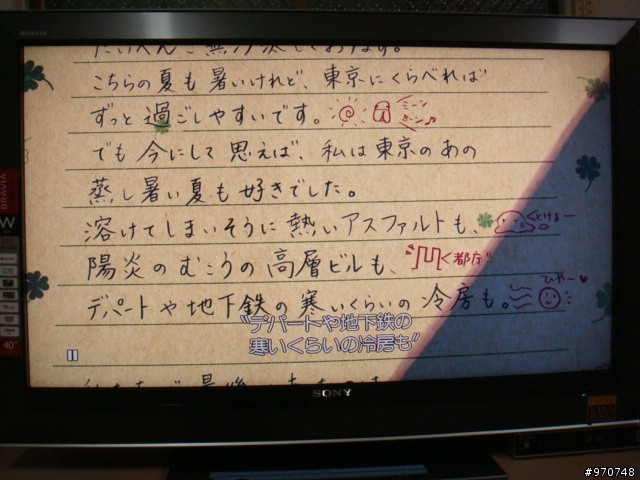 BRAVIA
こちらの夏も暑いけれど、東京にくらべれば
ずっと過ごしやすいです。
ミーン
ミーン♪
でも今にして思えば、私は東京のあの
蒸し暑い夏も好きでした。
溶けてしまいそうに熱いアスファルトも、
とけるー
陽炎のむこうの高層ビルも、
"く都庁"
デパートや地下鉄の寒いくらいの冷房も。
ひゃー♥
"デパートや地下鉄の
寒いくらいの冷房も"
SONY
BRAVIA
W
40"
#970748